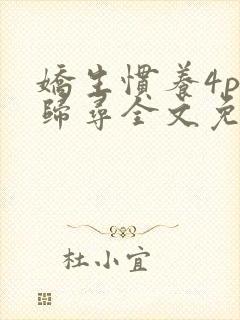 嬌生慣養4p
歸尋全文免
杜小宜